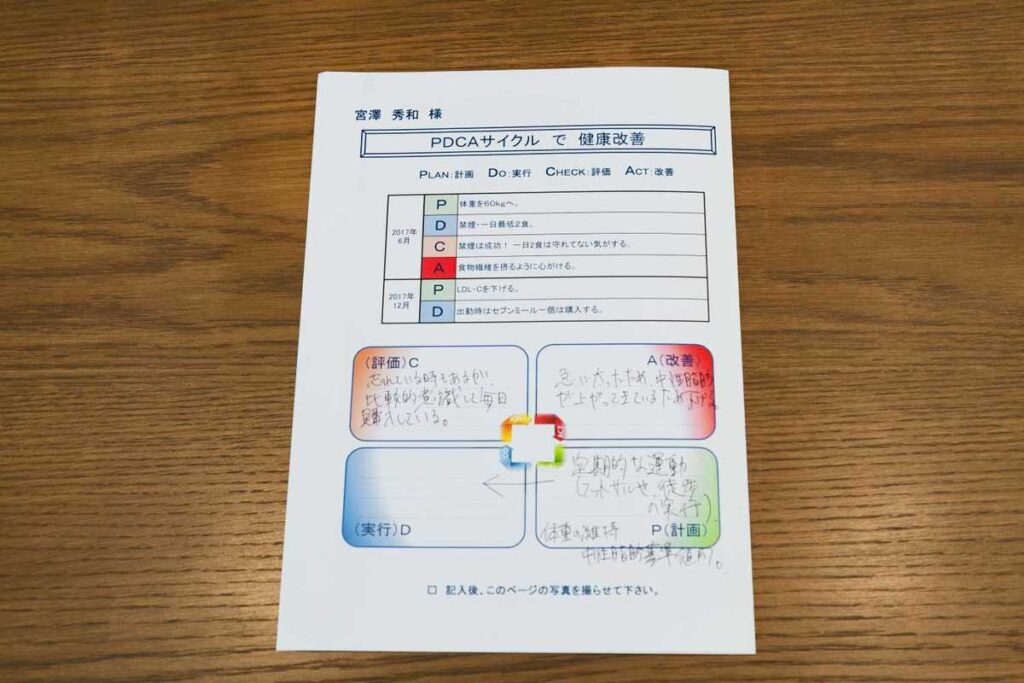 宮澤 秀和 様
PDCAサイクル で 健康改善
PLAN:計画 DO:実行 CHECK:評価 ACT:改善
2017年
6月
P 体重を60kgへ。
D 禁煙・一日最低2食。
C 禁煙は成功! 一日2食は守れてない気がする。
A 食物繊維を摂るように心がける。
2017年
12月
P LDL-Cを下げる。
D 出勤時はセブンミール一個は購入する。
(評価)C
忘れている時もあるが、
比較的意識して毎日
購入している。
A(改善)
急に太ったため、中性脂肪
が上がってきているため下げる。
定期的な運動
(フットサルや、徒歩
の実行)
(実行)D
体重の維持
P(計画)
中性脂肪基準値内。
□ 記入後、このページの写真を撮らせて下さい。